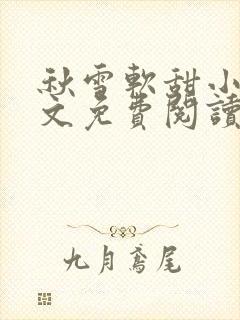 秋雪軟甜小
文免費閱讀
九月鳶尾